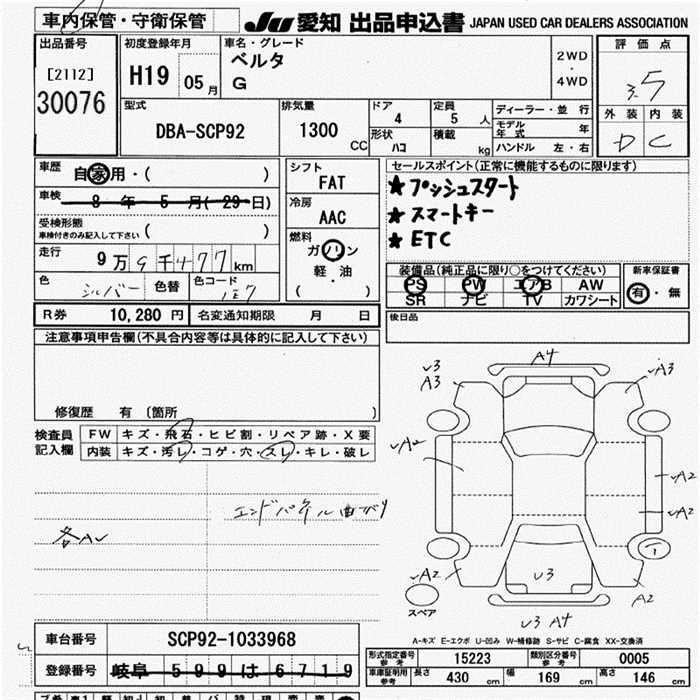 車内保管・守衛保管
JU 愛知 出品申込書 JAPAN USED CAR DEALERS ASSOCIATION
出品番号
[2112]
30076
初度登録年月
H19 05月
車名・グレード
ベルタ
G
2WD
・
4WD
評価点
3.5
外装 内装
D C
型式
DBA-SCP92
排気量
1300 CC
ドア
4
定員
5 人
形状
ハコ
積載
kg
ディーラー・並行
モデル年式 年
ハンドル 左・右
車歴
自家用・( )
車検
8 年 5 月(29日)
受検形態
車検付きのみ記入して下さい ( )
走行
9万9千477km
色
シルバー
色替
色コード
1E7
シフト
FAT
冷房
AAC
燃料
ガソリン
軽・油
( )
セールスポイント(正常に機能するものに限ります)
★プッシュスタート
★スマートキー
★ETC
装備品(純正品に限り○をつけてください)
PS PW エアB AW
SR ナビ TV カワシート
新車保証書
有・無
R券 10,280 円
名変通知期限 月 日
後日品
注意事項申告欄(不具合内容等は具体的に記入して下さい)
修復歴 有 〔箇所 )
検査員
記入欄
FW キズ・飛石・ヒビ割・リペア跡・X要
内装 キズ・汚レ・コゲ・穴・スレ・キレ・破レ
エンドパネル曲がり
各A
A4
U3
A3
A3
A2
A2
A2
A2
A2
U3
1
スペア
U3 A4
A-キズ E-エクボ U-凹み W-補修跡 S-サビ C-腐食 XX-交換済
車台番号 SCP92-1033968
登録番号 岐阜 599 は 6719
形式指定番号
参考
15223
類別区分番号
参考
0005
車庫証明用
参考
長さ 430 cm
幅 169 cm
高さ 146 cm